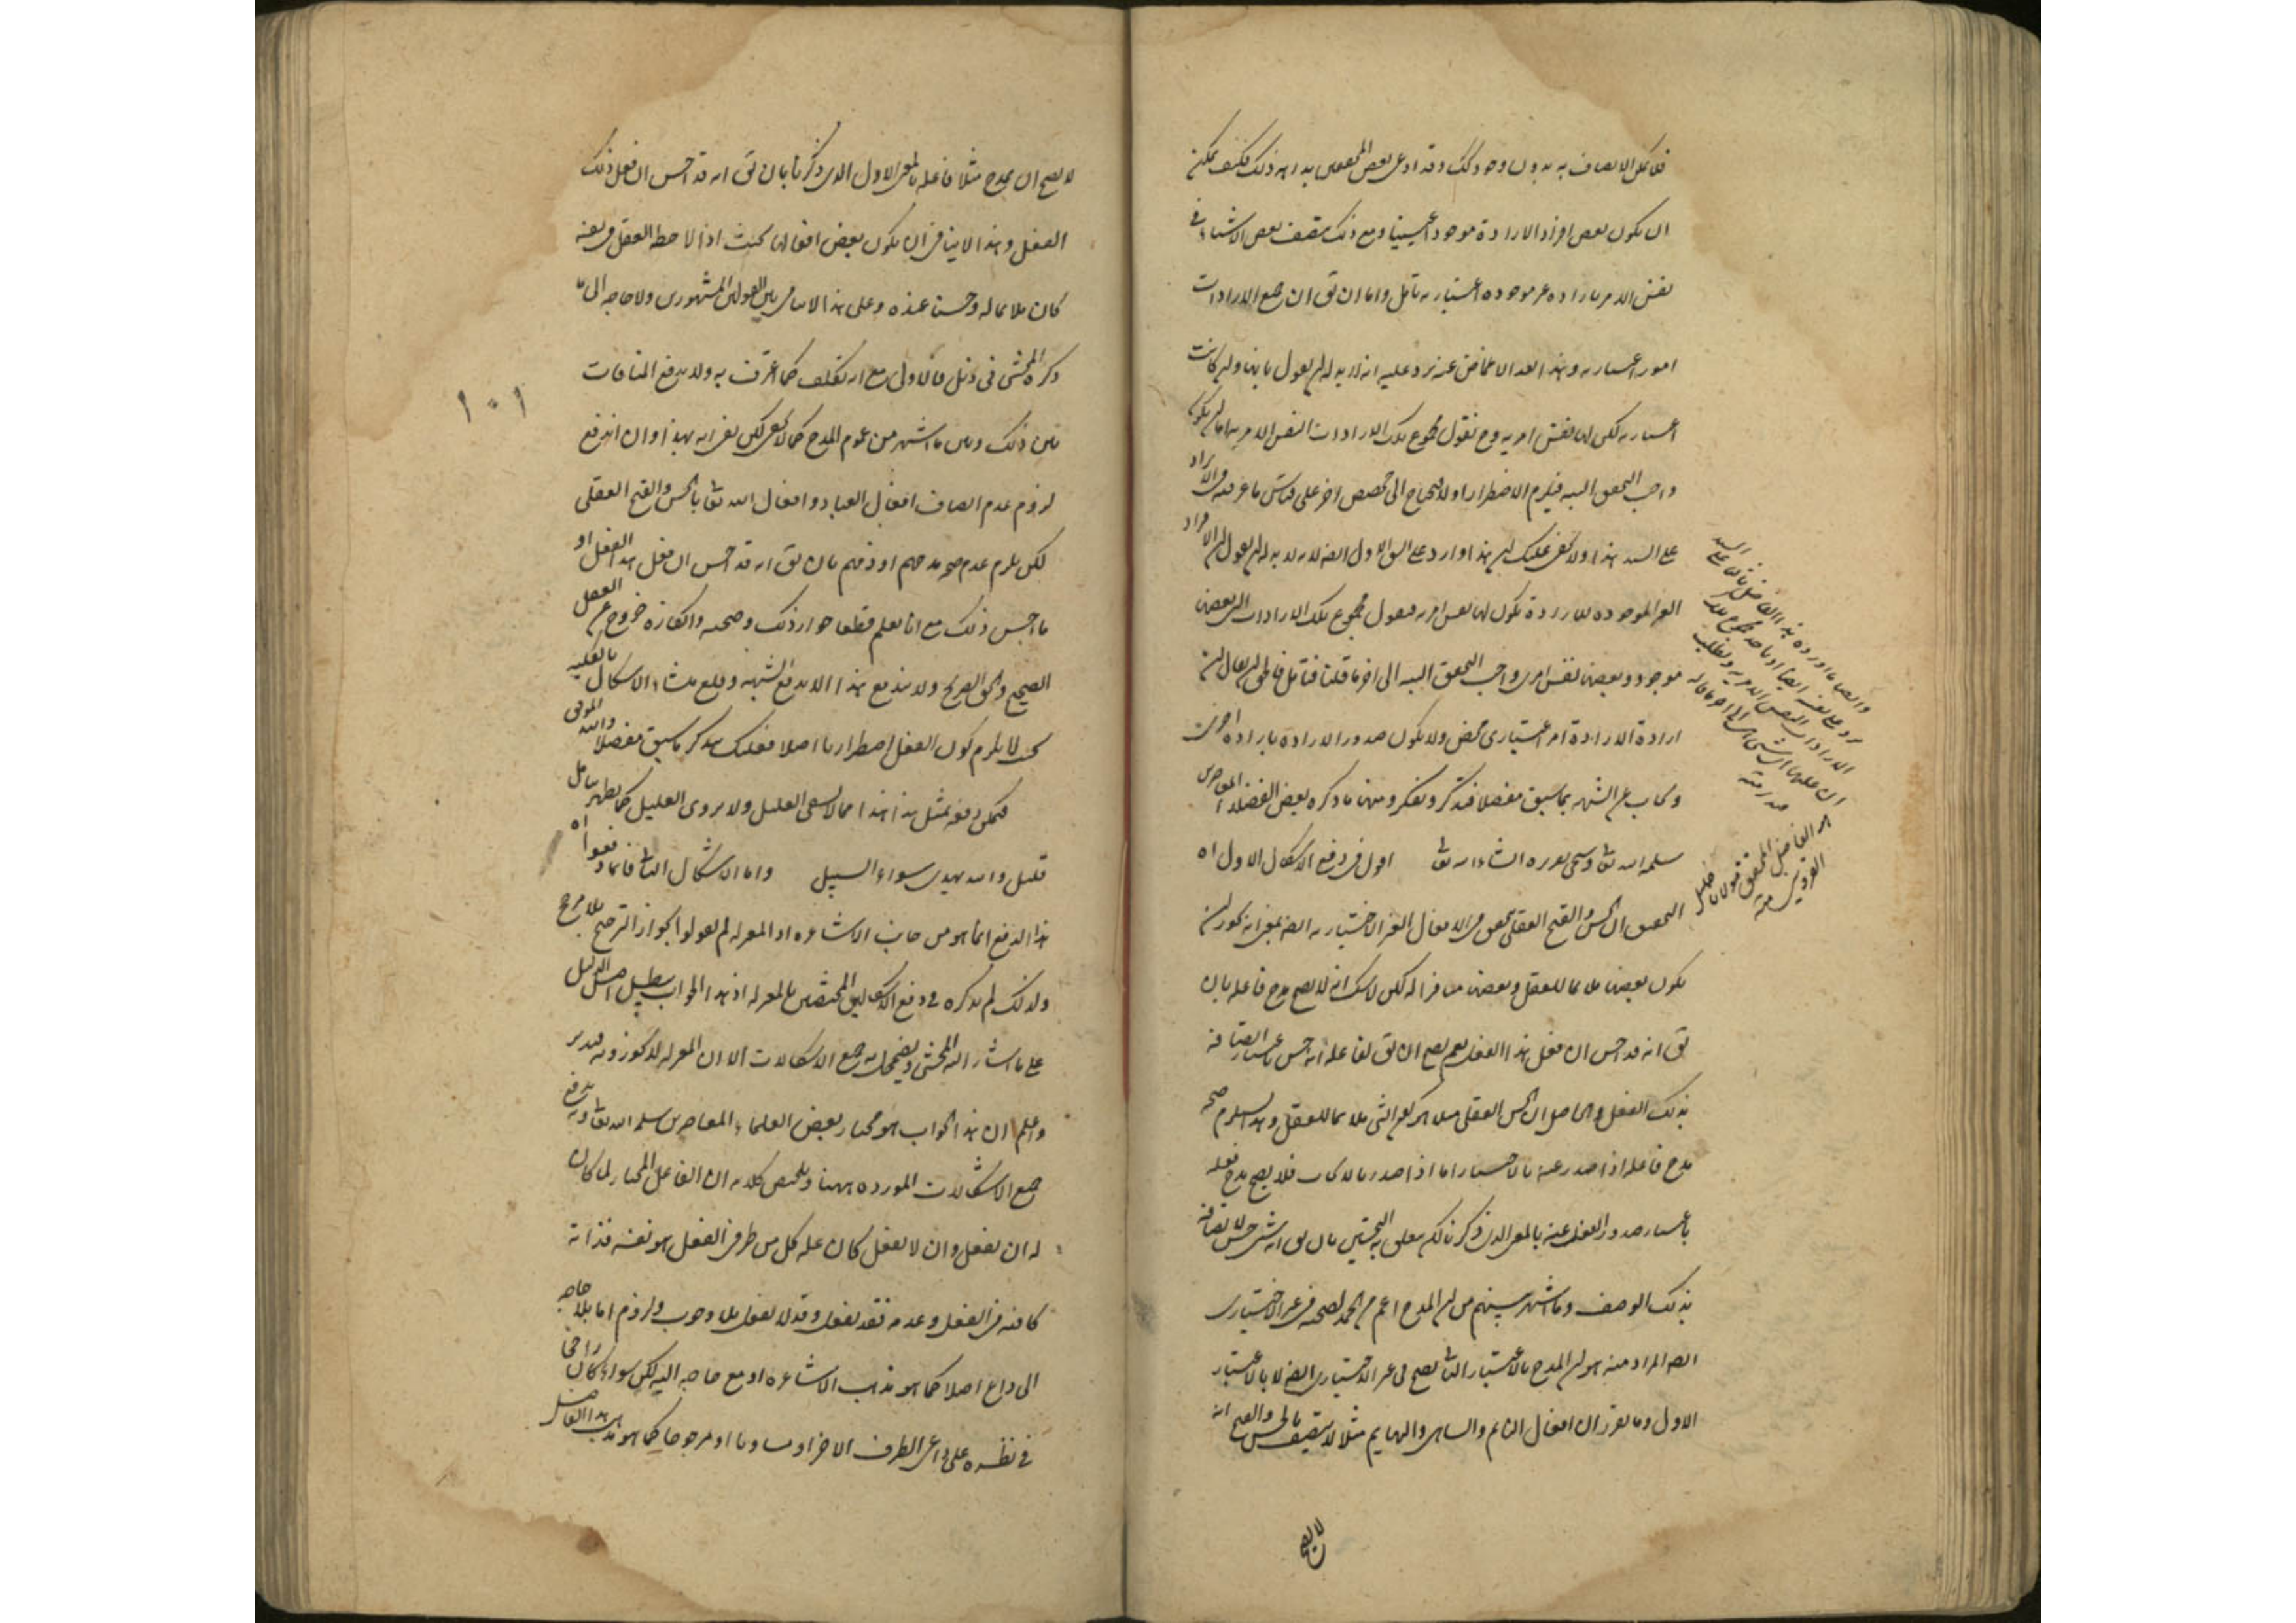 فلا يمكن الاتصاف به بدون وجود ذلك وقد ادعى بعض المحققين بداهة ذلك فكيف يمكن
ان يكون بعض افراد الارادة موجودا عينيا ومع ذلك يتصف بعض الاشياء في
نفس الامر بارادة غير موجودة اعتبارية تأمل واما ان يق ان جميع الارادات
امور اعتبارية وبهذا بعد الاغماض عنه يرد عليه انه لا بد له ان يقول بانها وان كانت
اعتبارية لكن لها نفس امرية وح نقول مجموع تلك الارادات النفس الامرية اما ان يكون
واجب التحقق البتة فيلزم الاضطرار او لا فيحتاج الى مخصص اخر على قياس ما عرفته في الايراد
على السيد هذا ولا يخفى عليك ان هذا وارد على الشق الاول ايضا لانه لا بد له ان يقول ان الافراد
الغير الموجودة للارادة يكون لها نفس امرية فنقول مجموع تلك الارادات التي بعضها
موجود وبعضها نفس امري واجب التحقق البتة الى اخر ما قلنا فتأمل فان قيل ان
ارادة الارادة امر اعتباري محض ولا يكون صدور الارادة بارادة اخرى
وايجاب عن الشبهة بما سبق مفصلا فتذكر وتفكر ومنها ما ذكره بعض الفضلاء المعاصرين
سلمه الله تعا وسيجئ تقريره انشاء الله تعا اقول في دفع الاشكال الاول اه
التحقيق ان الحسن والقبح العقلي تحقق في الافعال الغير الاختيارية ايضا بمعنى انه يجوز ان
يكون بعضها ملائما للعقل وبعضها منافرا له لكن لا شك انه لا يصح مدح فاعله بان
يق انه قد احسن ان فعل هذا الفعل نعم يصح ان يق لفاعله انه حسن باعتبار اتصافه
بذلك الفعل والحاصل ان الحسن العقلي مثلا هو كون الشئ ملائما للعقل وهذا يستلزم صحة
مدح فاعله اذا صدر عنه بالاختيار اما اذا صدر بالايجاب فلا يصح مدح فعله
باعتبار صدور الفعل عنه بالمعنى الذي ذكرنا لكن يتعلق به التحسين بان يق انه شئ حسن لاتصافه
بذلك الوصف وما اشتهر بينهم من ان المدح اعم من الحمد لصحته في غير الاختياري
ايضا المراد منه هو ان المدح بالاعتبار الثاني يصح في غير الاختياري ايضا لا بالاعتبار
الاول وما تقرر ان افعال النائم والساهي والبهايم مثلا لا يتصف بالحسن والقبح انه
لا يصح
وايضا ما اورده هذا الفاضل ثانيا على السيد
يرد على نفسه ايضا
الارادات النفس الامرية ويطلب
ان علتها اي شئ الى اخر ما قاله
منه
هو الفاضل المحقق مولانا خليل
القزويني منه
لا يصح ان يمدح مثلا فاعله بالمعنى الاول الذي ذكرنا بان يق انه قد احسن ان فعل ذلك
الفعل وبهذا لا ينافي ان يكون بعض افعالها بحيث اذا لاحظه العقل في نفسه
كان ملائما له وحسنا عنده وعلى هذا لا تنافي بين القولين المشهورين ولا حاجة الى ما
ذكره المحشي في ذيل فالاولى مع انه تكلف كما اعترف به ولا يدفع المنافات
بين ذلك وبين ما اشتهر من عموم المدح كما لا يخفى لكن بقي انه بهذا وان اندفع
لزوم عدم اتصاف افعال العباد وافعال الله تعا بالحسن والقبح العقلي
لكن يلزم عدم صحة مدحهم او ذمهم بان يق انه قد احسن ان فعل هذا الفعل او
ما احسن ذلك مع انا نعلم قطعا جواز ذلك وصحته وانكاره خروج عن العقل
الصحيح والحق الصريح ولا يندفع هذا الا بدفع الشبهة وقلع منشاء الاشكال بالكلية
بحيث لا يلزم كون الفعل اضطراريا اصلا فعليك بتذكر ما سبق مفصلا والله الموفق
فيمكن دفعه بمثل هذا هذا مما لا يشفي العليل ولا يروي الغليل كما يظهر بتأمل
قليل والله يهدي سواء السبيل واما الاشكال الثاني فانما دفعوا اه
هذا الدفع انما هو من جانب الاشاعرة اذ المعتزلة لم يقولوا بجواز الترجيح بلا مرجح
ولذلك لم يذكره في دفع الاشكالين المختصين بالمعتزلة اذ بهذا الجواب يبطل اصل الدليل
على ما اشار اليه المحشي ويضمحل به جميع الاشكالات الا ان المعتزلة لا يجوزونه فتدبر
واعلم ان هذا الجواب هو مختار بعض العلماء المعاصرين سلمه الله تعا وبه يدفع
جميع الاشكالات الموردة ههنا وتلخيص كلامه ان الفاعل المختار لما كان
له ان يفعل وان لا يفعل كان علة كل من طرفي الفعل هو نفسه فذاته
كافية في الفعل وعدمه فقد يفعل وقد لا يفعل بلا وجوب ولزوم اما بلا حاجة
الى داع اصلا كما هو مذهب الاشاعرة او مع حاجة اليه لكن سواء كان راجحا
في نظره على داعي الطرف الاخر او مساويا او مرجوحا كما هو مذهب هذا الفاضل
١٠١